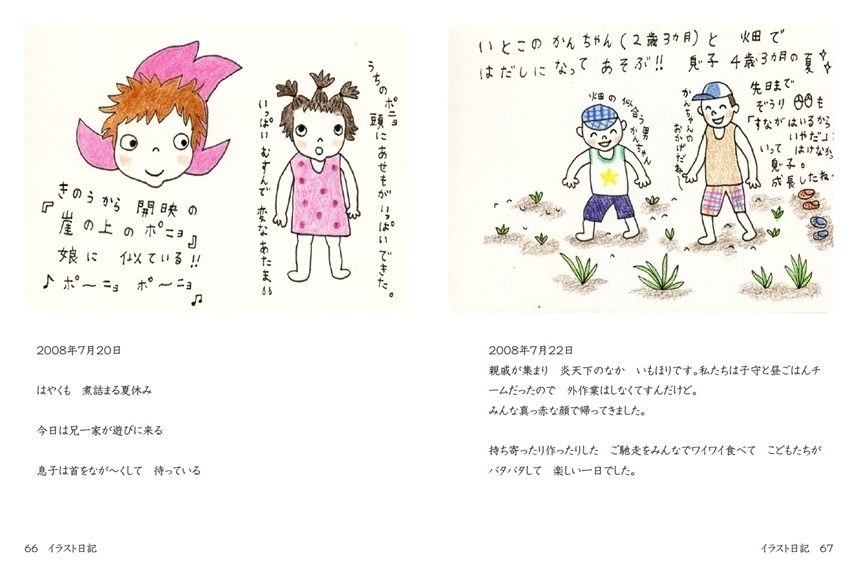 きのうから 開映の
『崖の上のポニョ』
娘に 似ている!!
♪ ポ〜ニョ ポ〜ニョ ♫
うちのポニョ
頭にあせもがいっぱいできた。
いっぱいむすんで変なあたま
2008年7月20日
はやくも 煮詰まる夏休み
今日は兄一家が遊びに来る
息子は首をなが〜くして 待っている
66 イラスト日記
いとこの かんちゃん(2歳3ヵ月)と 畑で
はだしになって あそぶ!! 息子 4歳3ヵ月の夏
畑の似合う男
かんちゃん
かんちゃんの
おかげだね
先日まで
ぞうり も
「すながはいるから
いやだ」と
いって はけなかった
息子。
成長したね
2008年7月22日
親戚が集まり 炎天下のなか いもほりです。私たちは子守と昼ごはんチ
ームだったので 外作業はしなくてすんだけど。
みんな真っ赤な顔で帰ってきました。
持ち寄ったり作ったりした ご馳走をみんなでワイワイ食べて こどもたちが
バタバタして 楽しい一日でした。
イラスト日記 67